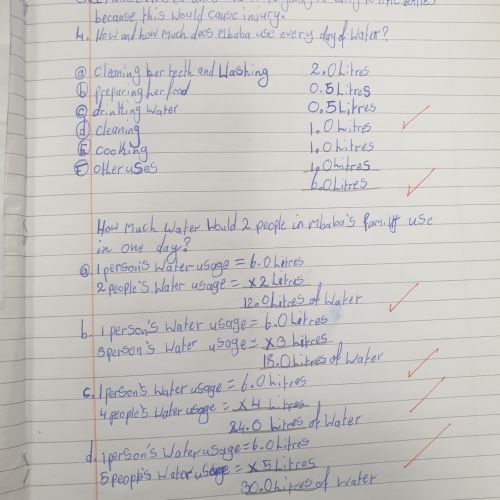 because this would cause injury.
4. How and how much does Mbaba use every day of water?
ⓐ cleaning her teeth and Washing 2.0 Litres
ⓑ preparing her food 0.5 Litres
ⓒ drinking water 0.5 Litres
ⓓ cleaning 1.0 Litres
ⓔ cooking 1.0 Litres
ⓕ other uses 1.0 Litres
6.0 Litres
How Much Water Would 2 people in mbaba's family use
in one day?
ⓐ 1 person's Water usage = 6.0 Litres
2 people's Water usage = x 2 Litres
12.0 Litres of Water
b. 1 person's Water usage = 6.0 Litres
3 person's Water usage = x 3 Litres
18.0 Litres of Water
c. 1 person's Water usage = 6.0 Litres
4 people's Water usage = x 4 Litres
24.0 Litres of Water
d. 1 person's Water usage = 6.0 Litres
5 people's Water usage = x 5 Litres
30.0 Litres of Water